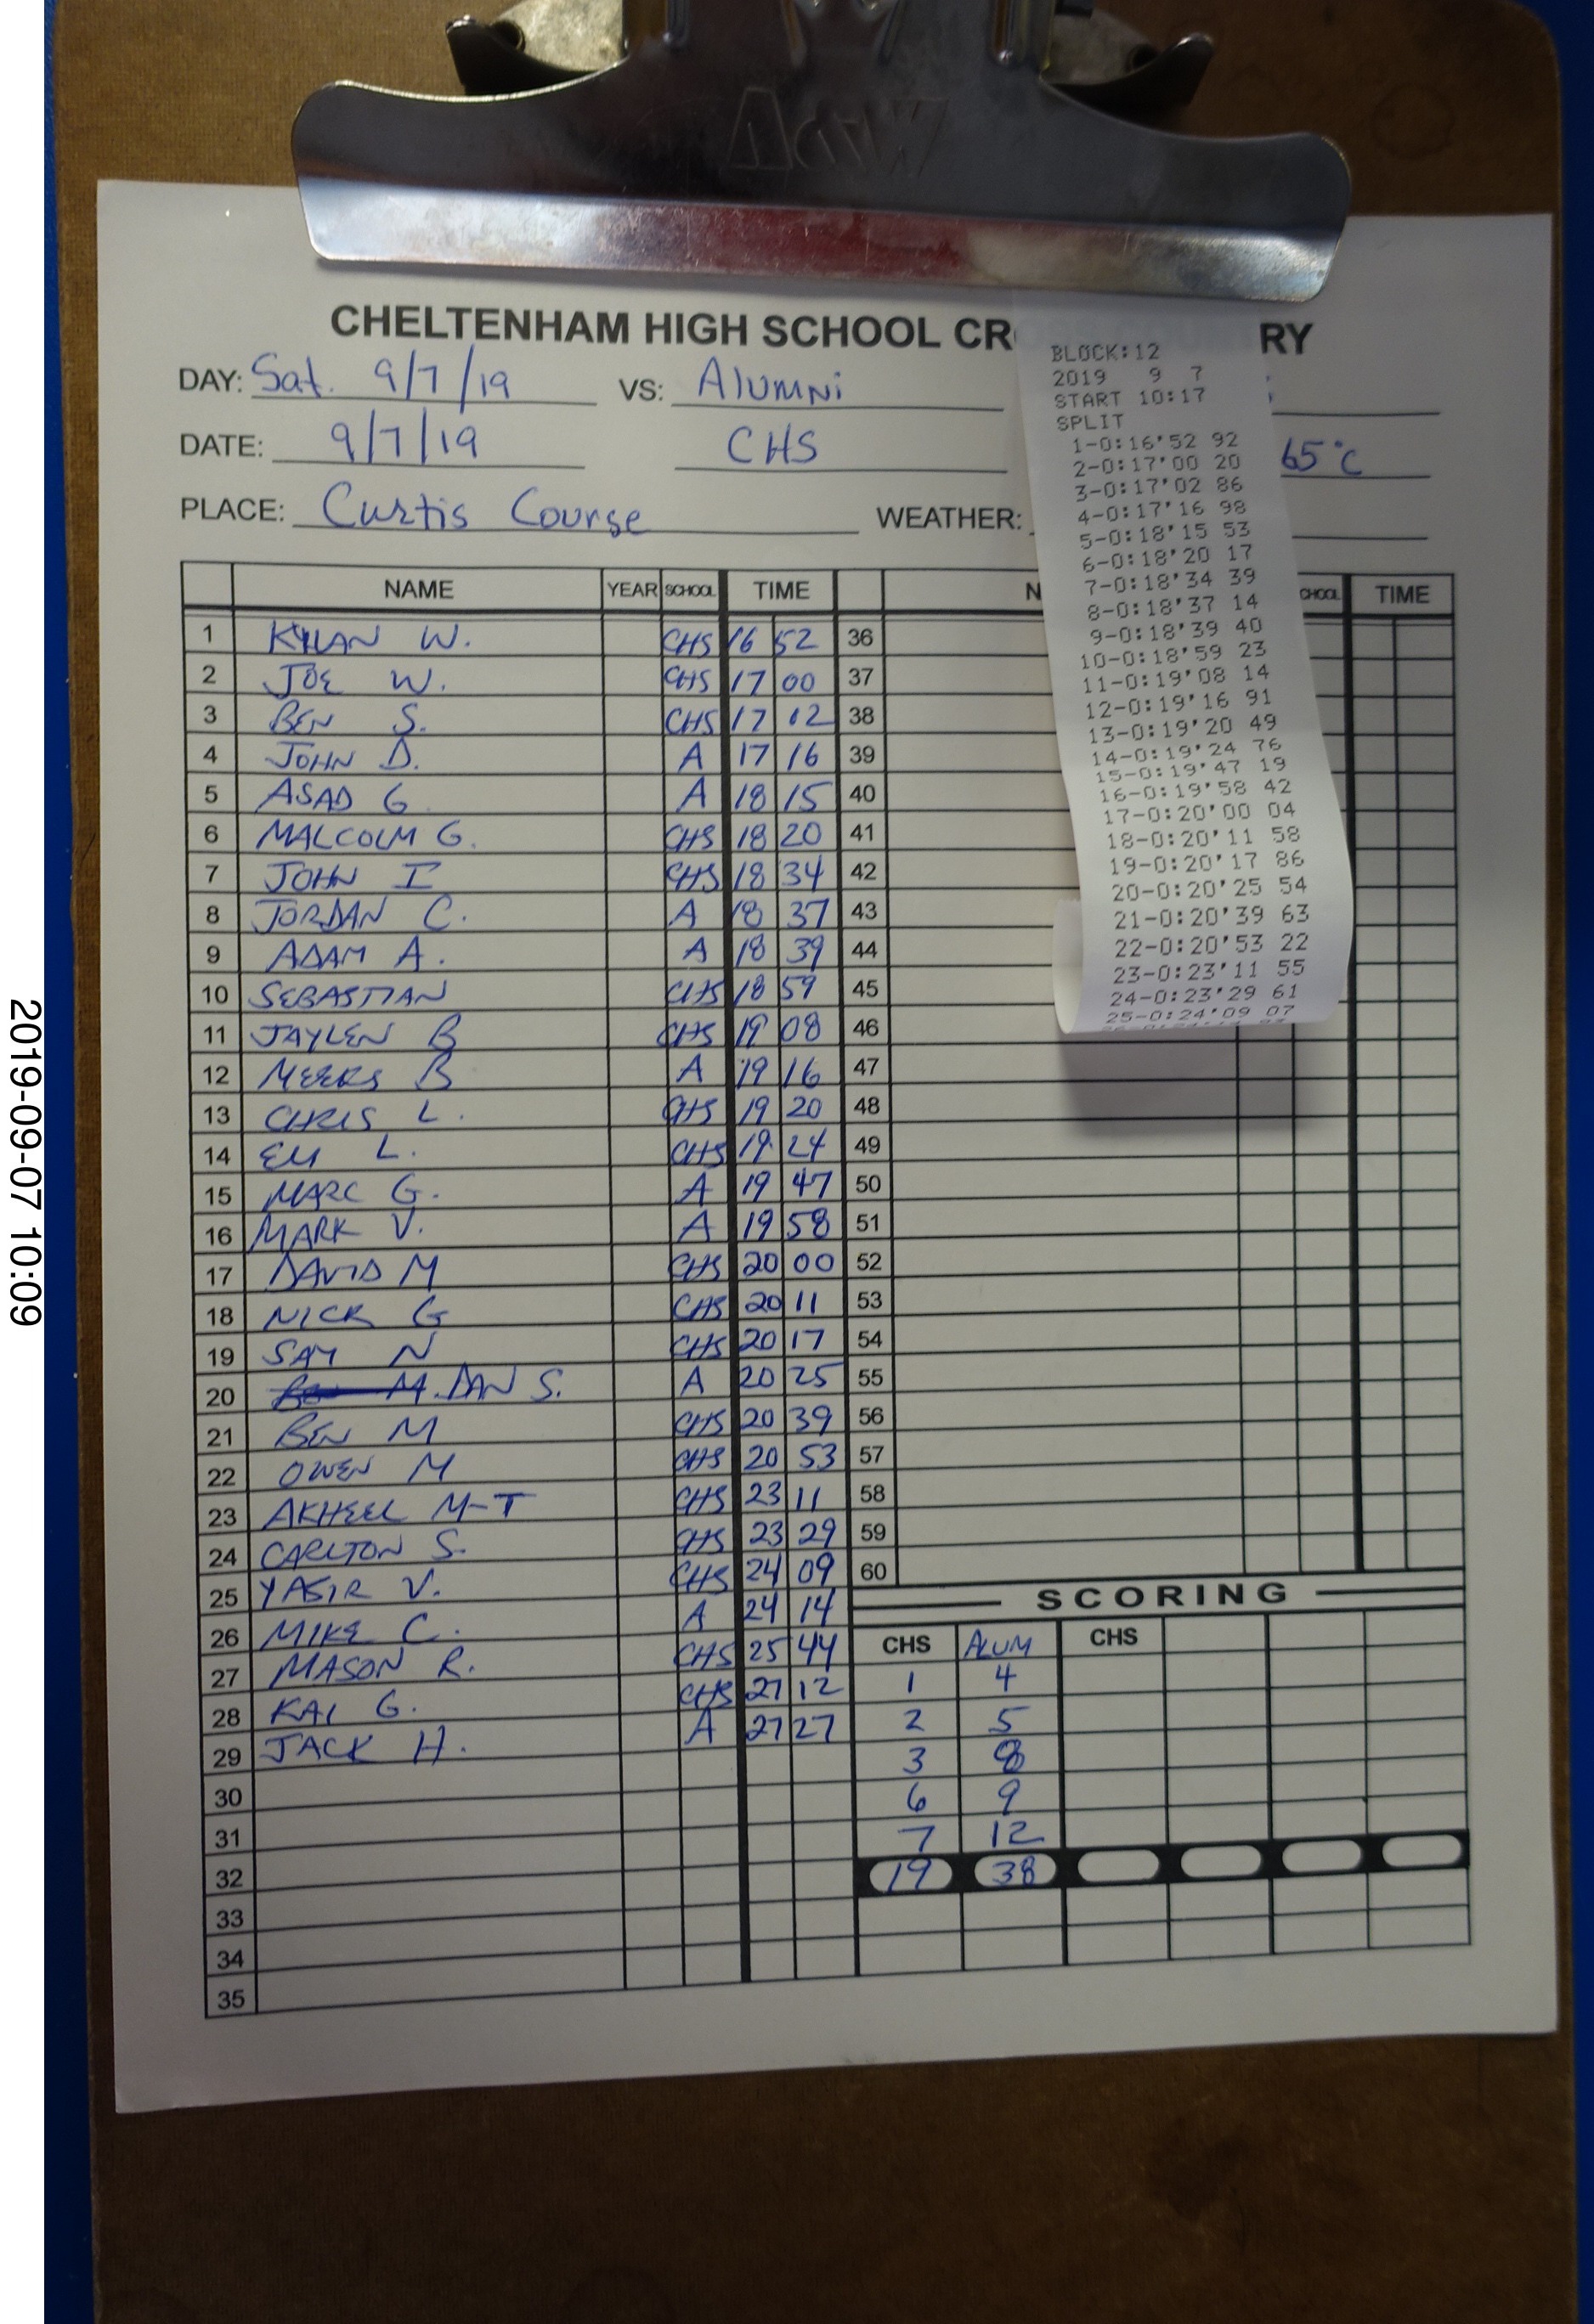 CHELTENHAM HIGH SCHOOL CR RY
DAY: Sat. 9/7/19 VS: Alumni
DATE: 9/7/19 CHS 65°C
PLACE: Curtis Course WEATHER:
BLOCK:12
2019 9 7
START 10:17
SPLIT
1-0:16'52 92
2-0:17'00 20
3-0:17'02 86
4-0:17'16 98
5-0:18'15 53
6-0:18'20 17
7-0:18'34 39
8-0:18'37 14
9-0:18'39 40
10-0:18'59 23
11-0:19'08 14
12-0:19'16 91
13-0:19'20 49
14-0:19'24 76
15-0:19'47 19
16-0:19'58 42
17-0:20'00 04
18-0:20'11 58
19-0:20'17 86
20-0:20'25 54
21-0:20'39 63
22-0:20'53 22
23-0:23'11 55
24-0:23'29 61
25-0:24'09 07
NAME YEAR SCHOOL TIME N CHOOL TIME
1 KYLAN W. CHS 16 52 36
2 JOE W. CHS 17 00 37
3 BEN S. CHS 17 02 38
4 JOHN D. A 17 16 39
5 ASAD G A 18 15 40
6 MALCOLM G. CHS 18 20 41
7 JOHN I CHS 18 34 42
8 JORDAN C. A 18 37 43
9 ADAM A. A 18 39 44
10 SEBASTIAN CHS 18 59 45
11 JAYLEN B CHS 19 08 46
12 MEEKS B A 19 16 47
13 CHRIS L. CHS 19 20 48
14 ELI L. CHS 19 24 49
15 MARC G. A 19 47 50
16 MARK V. A 19 58 51
17 DAVID M CHS 20 00 52
18 NICK G CHS 20 11 53
19 SAM N CHS 20 17 54
20 DAN S. A 20 25 55
21 BEN M CHS 20 39 56
22 OWEN M CHS 20 53 57
23 AKHEEL M-T CHS 23 11 58
24 CARLTON S. CHS 23 29 59
25 YASIR V. CHS 24 09 60
26 MIKE C. A 24 14
27 MASON R. CHS 25 44
28 KAI G. CHS 27 12
29 JACK H. A 27 27
30
31
32
33
34
35
SCORING
CHS ALUM CHS
1 4
2 5
3 8
6 9
7 12
19 38
2019-09-07 10:09